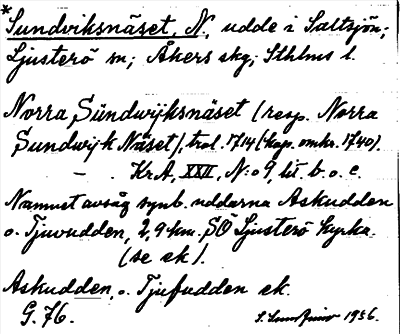 * Sundviksnäset, N., udde i Saltsjön;
Ljusterö sn; Åkers skg; Sthlms l.
Norra Sündwijksnäset (resp. Norra
Sundwijk Näset), trol. 1714 (kop. omkr. 1740).
— . KrA, XXII, N:o 9, lit. b. o. c.
Namnet avsåg synb. uddarna Askudden
o. Tjuvudden, 2,9 km. SÖ Ljusterö kyrka.
(se ek).
Askudden, o. Tjufudden ek.
G. 76.
1936.